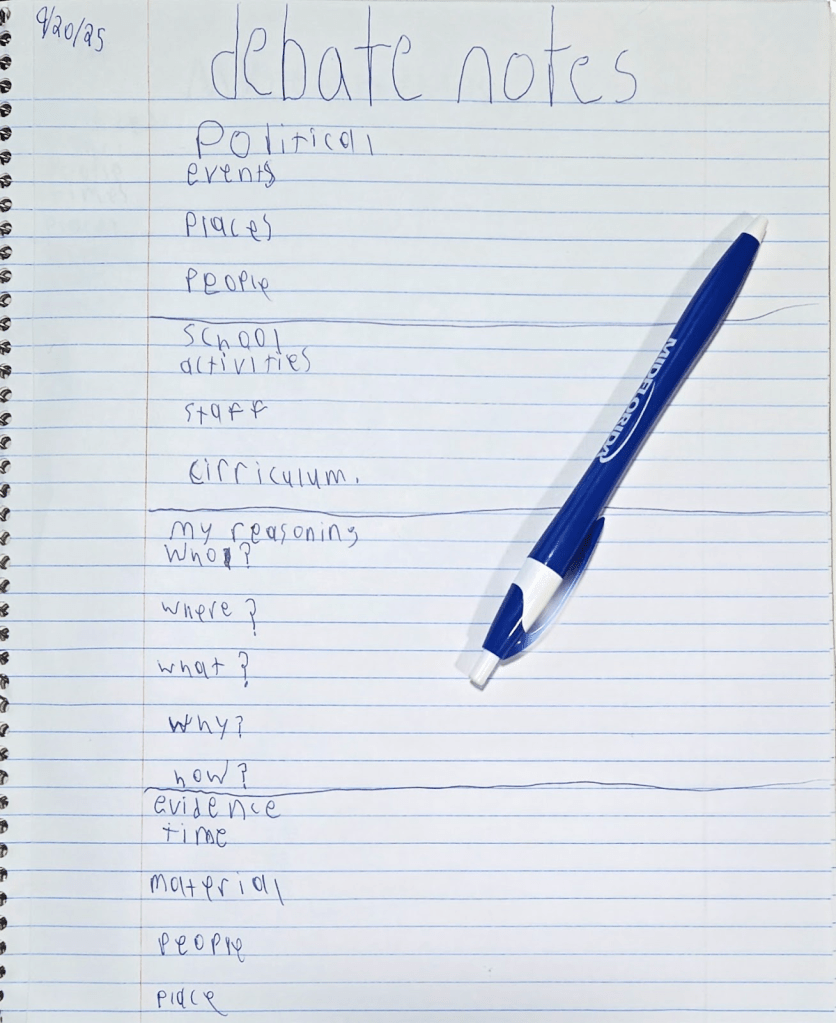 9/20/25
debate notes
Political
events
Places
People
school
activities
staff
cirriculum.
my reasoning
who?
where?
what?
why?
how?
evidence
time
material
people
place
MIDFLORIDA